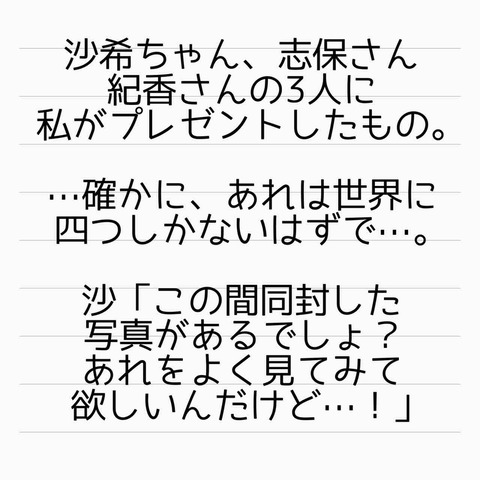 沙希ちゃん、志保さん
紀香さんの3人に
私がプレゼントしたもの。
…確かに、あれは世界に
四つしかないはずで…。
沙「この間同封した
写真があるでしょ？
あれをよく見てみて
欲しいんだけど…！」